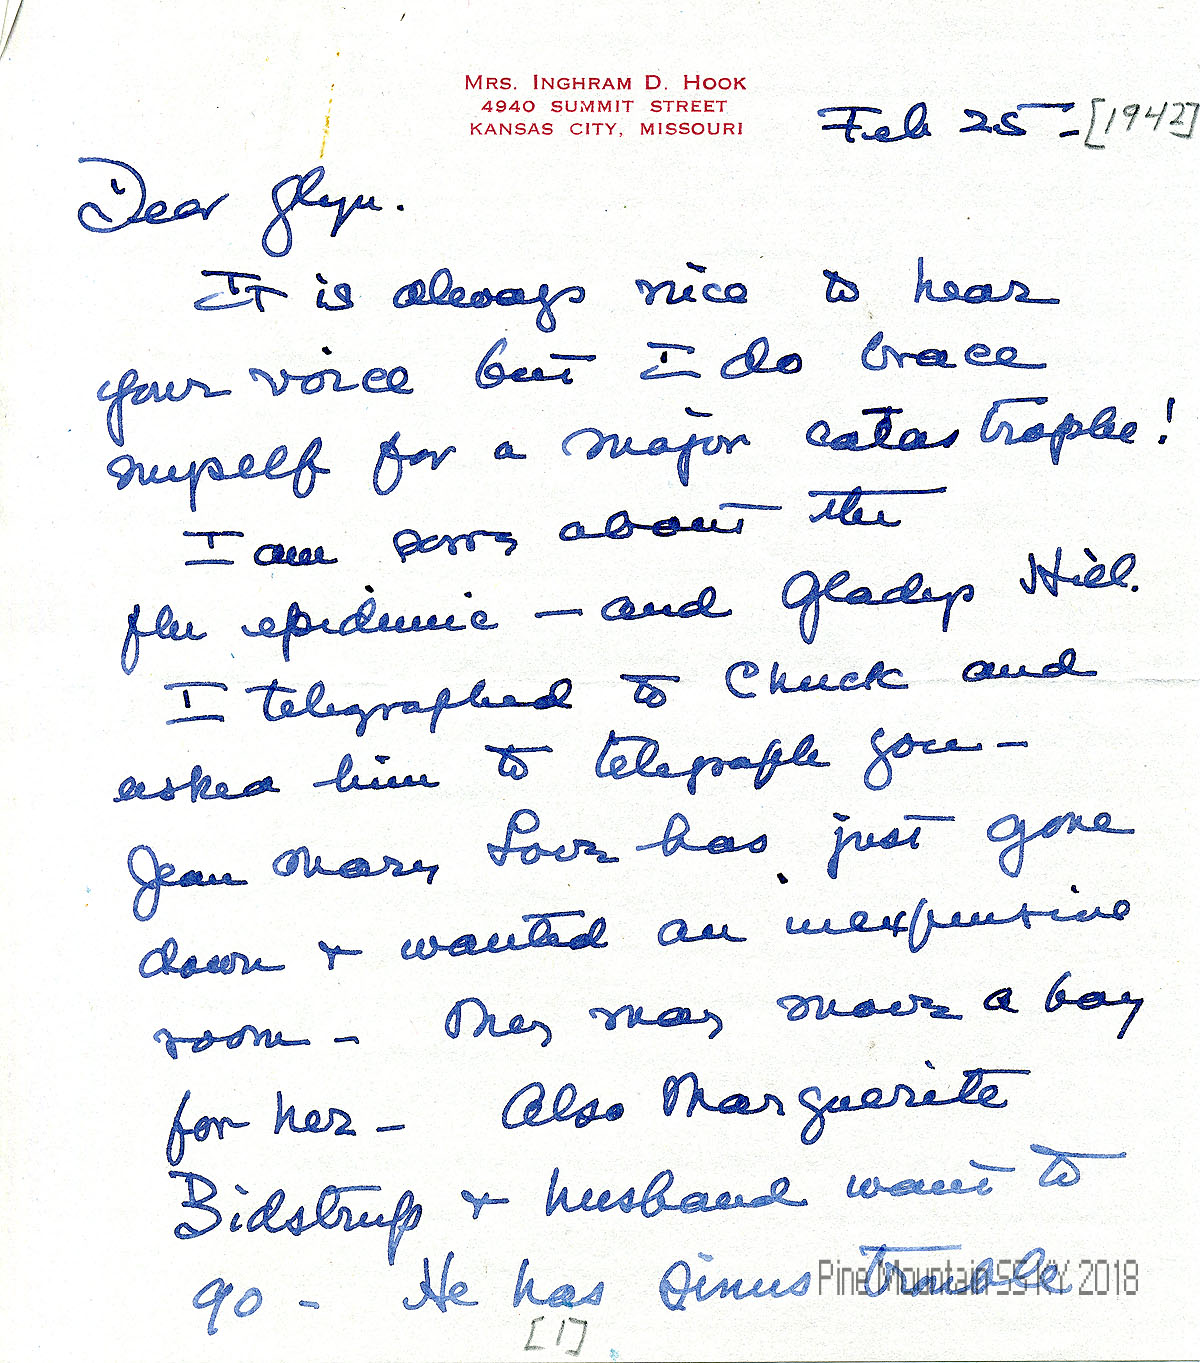 MRS. INGHRAM D. HOOK
4940 SUMMIT STREET
KANSAS CITY, MISSOURI
Feb 25 - [1942]
Dear Glyn.
It is always nice to hear
your voice but I do brace
myself for a major catastrophe!
I am sorry about the
flu epidemic - and Gladys Hill.
I telegraphed to Chuck and
asked him to telegraph you -
Jean Mary Love has just gone
down + wanted an inexpensive
room - They may move a boy
for her - Also Marguerite
Bidstrup + husband want to
go - He has sinus trouble
Pine Mountain SS KY 2018
[1]